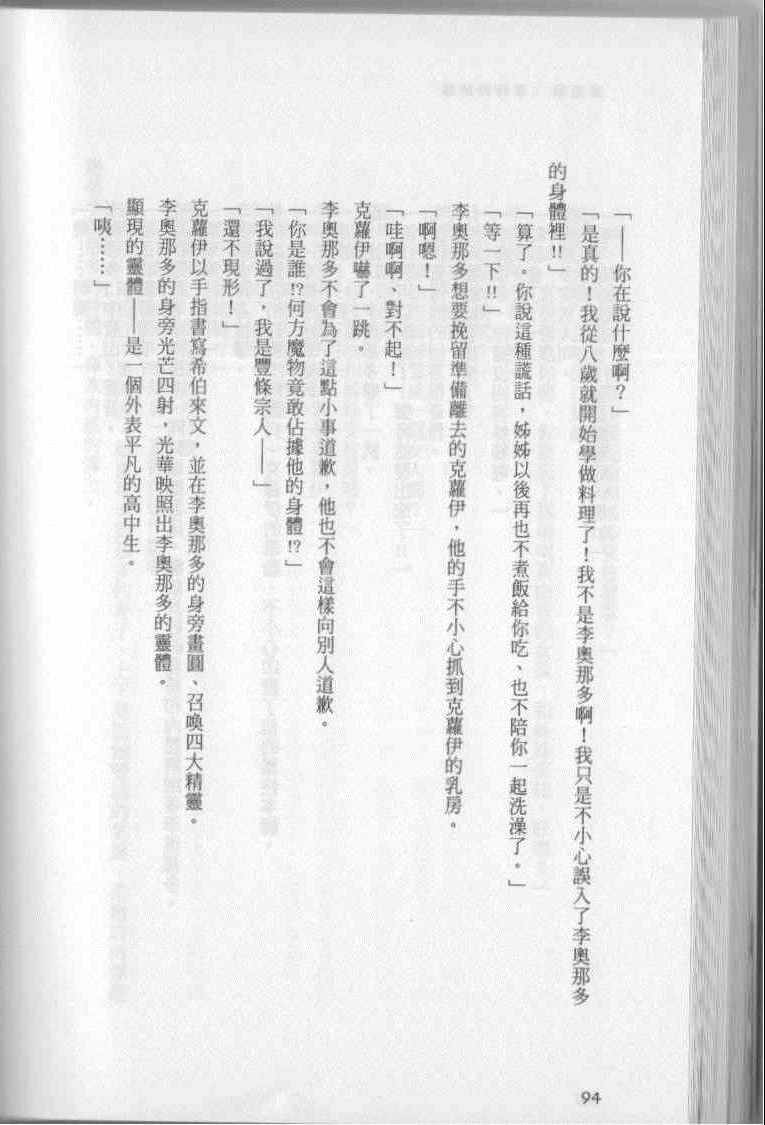 「——你在說什麼啊？」
「是真的！我從八歲就開始學做料理了！我不是李奧那多啊！我只是不小心誤入了李奧那多
的身體裡!!」
「算了。你說這種謊話，姊姊以後再也不煮飯給你吃、也不陪你一起洗澡了。」
「等一下!!」
李奧那多想要挽留準備離去的克蘿伊，他的手不小心抓到克蘿伊的乳房。
「啊嗯！」
「哇啊啊、對不起！」
克蘿伊嚇了一跳。
李奧那多不會為了這點小事道歉，他也不會這樣向別人道歉。
「你是誰!?何方魔物竟敢佔據他的身體!?」
「我說過了，我是豐條宗人——」
「還不現形！」
克蘿伊以手指書寫希伯來文，並在李奧那多的身旁畫圓、召喚四大精靈。
李奧那多的身旁光芒四射，光華映照出李奧那多的靈體。
顯現的靈體——是一個外表平凡的高中生。
「咦……」
94